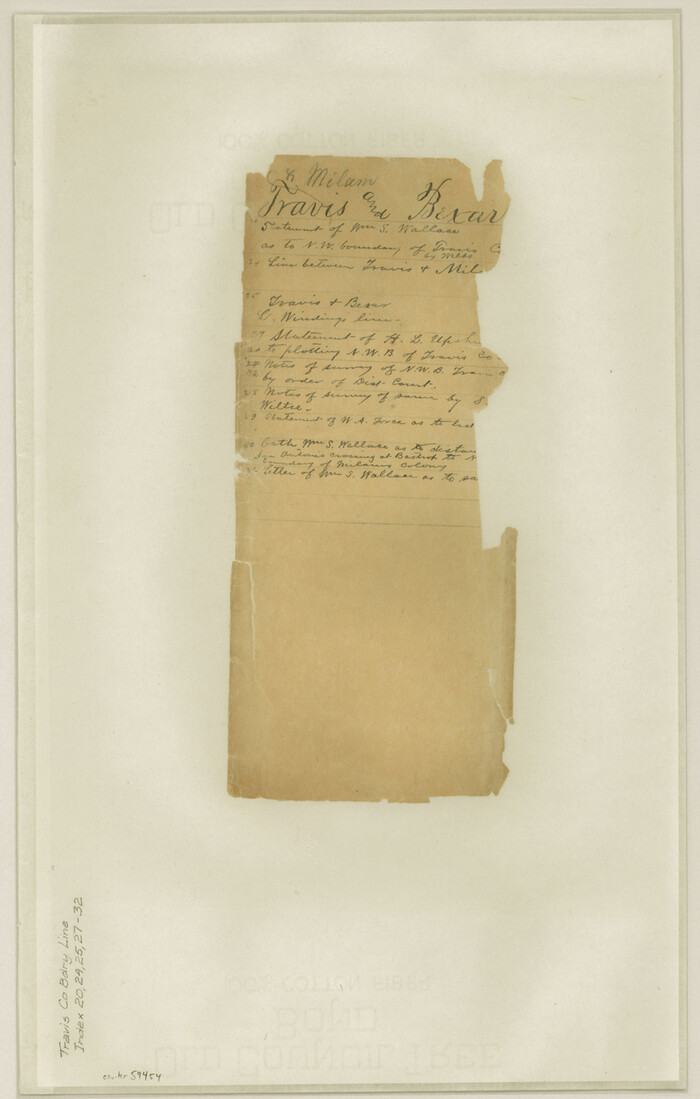 & Milam
Travis and Bexar
Statement of Wm S. Wallace
as to N.W. boundary of Travis C
by M&Bs
24 Line between Travis & Mil
25 Travis & Bexar
C. Windings line
27 Statement of H. L. Upsh
as to plotting N.W.B of Travis Co
Notes of survey of N.W.B. Travis C
by order of Dist Court.
28 Notes of survey of same by S
Wiltse
29 Statement of W A. Force as to last
30 Oath Wm S. Wallace as to distan
San Antonio crossing at Bastrop to N
Boundary of Milams Colony
Letter of Wm S. Wallace as to sa
Travis Co Bdry Line
Index 20,24,25,27-32
59454
OLD COUNCIL TREE
BOND
100% COTTON FIBER